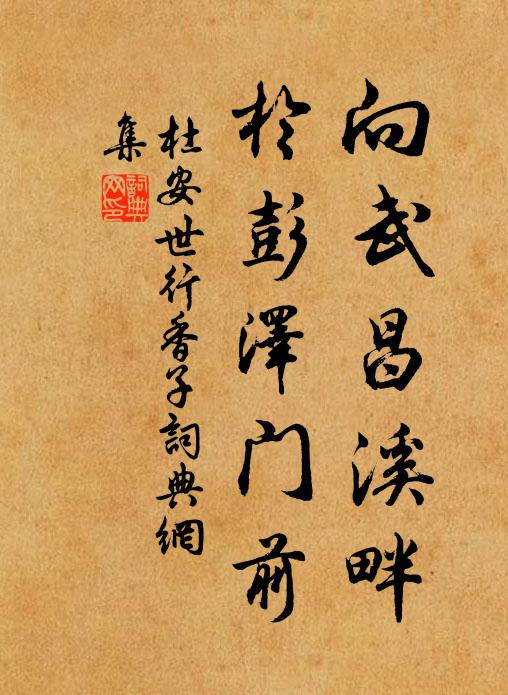 向武昌溪畔
於彭澤门前
杜安世行香子詞典網
集
詞典网印